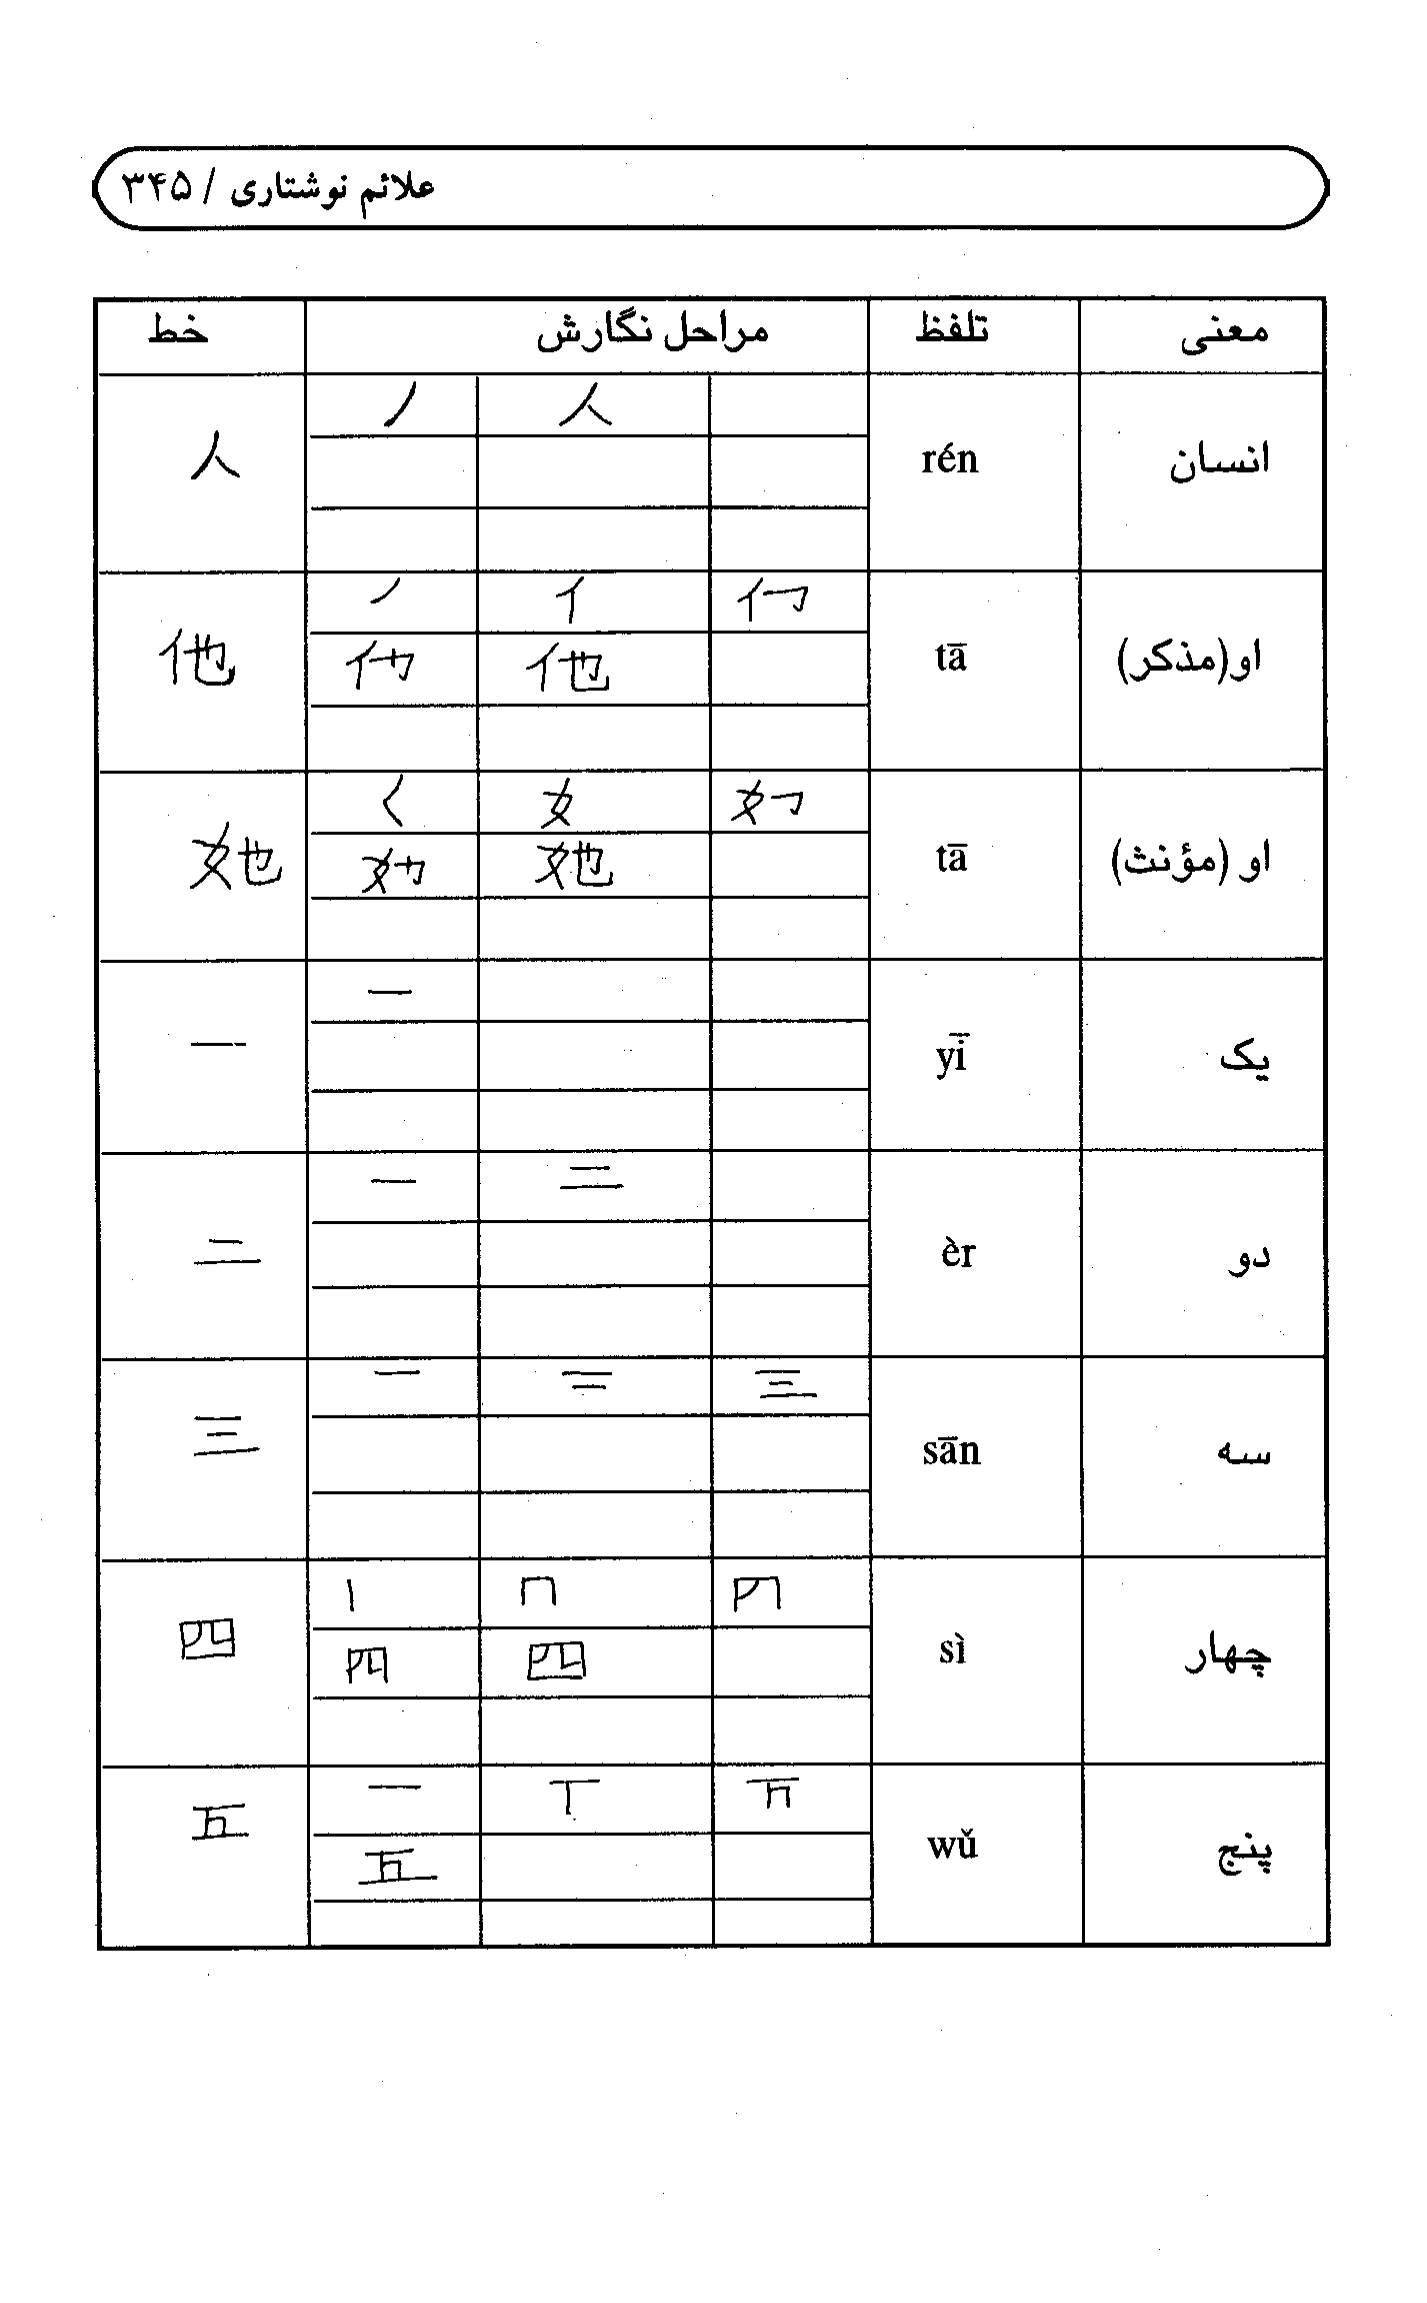 علائم نوشتاری / ۳۴۵
معنی تلفظ مراحل نگارش خط
انسان rén 丿 人 人
او(مذکر) tā 丿 亻 他
他
او (مؤنث) tā く 女 她
她
یک yī 一 一
دو èr 一 二 二
سه sān 一 二 三 三
چهار sì 丨 冂 四
四
پنج wǔ 一 丅 五
五